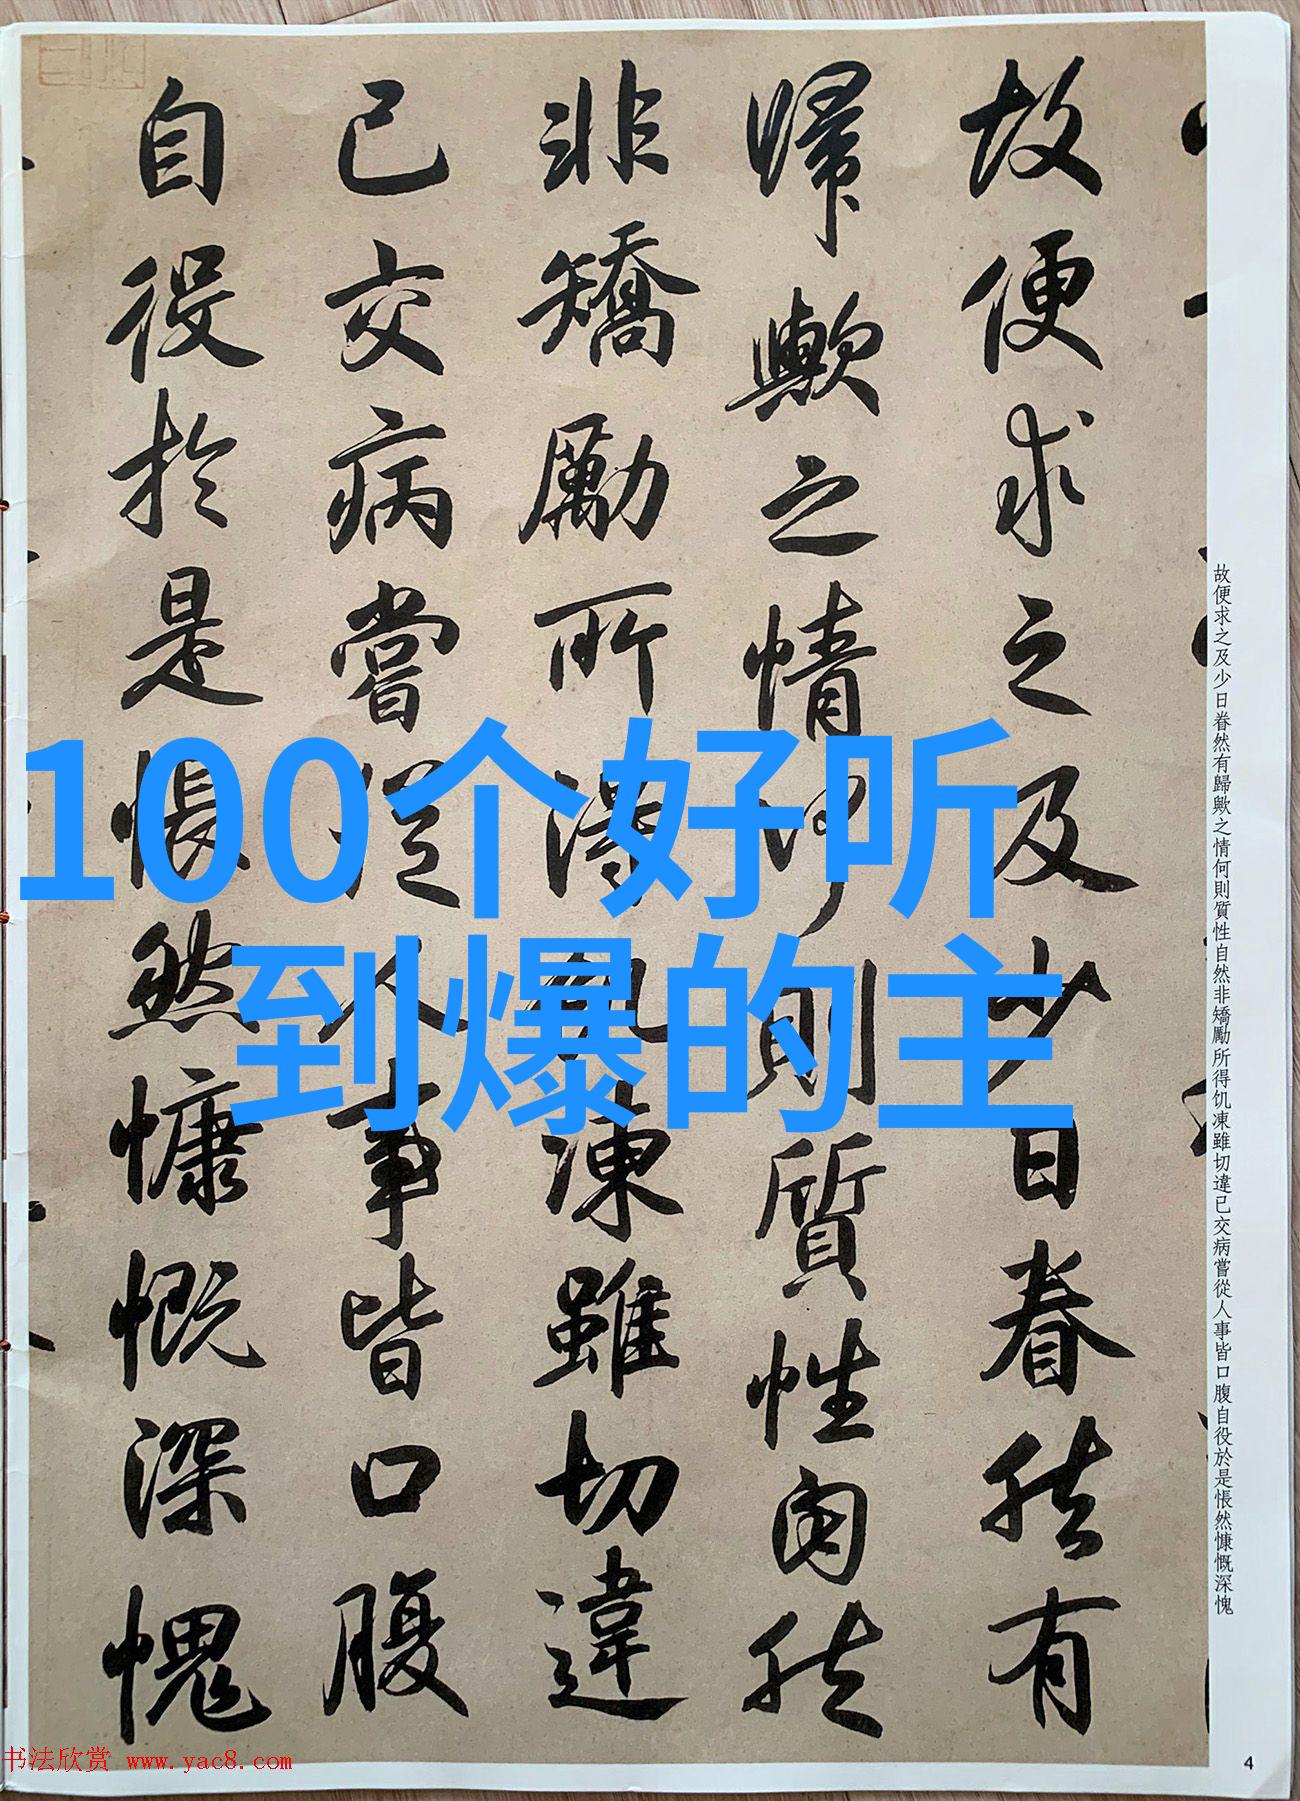 故便求之及少日眷然有
歸歟之情何則質性自然
非矯勵所得飢凍雖切違
已交病嘗從人事皆口腹
自役於是悵然慷慨深愧
100个好听
到爆的主
故便求之及少日眷然有歸歟之情何則質性自然非矯勵所得饥凍雖切違已交病嘗從人事皆口腹自役於是悵然慷慨深愧
书法欣赏 www.yac8.com
4